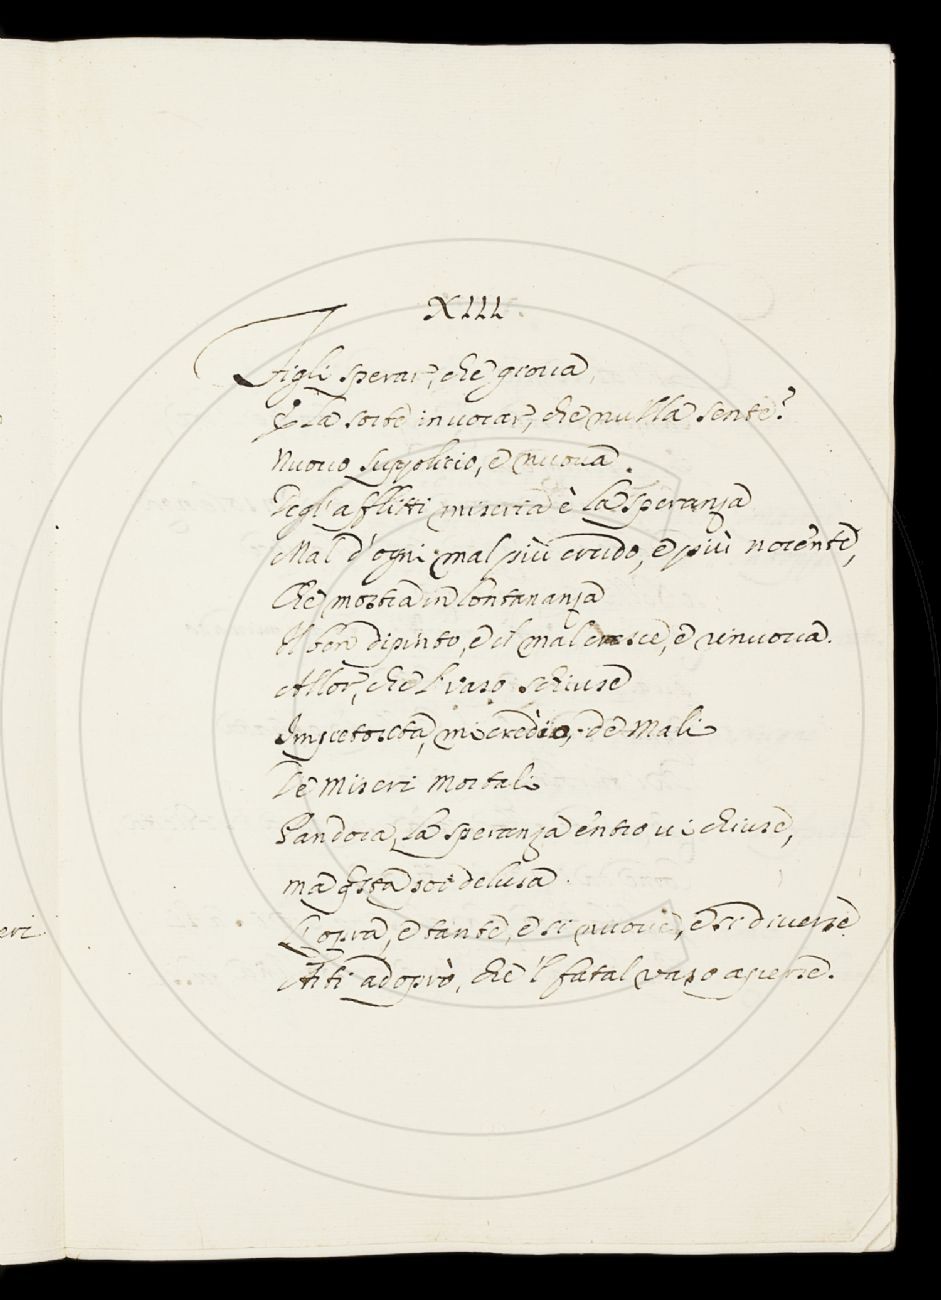 XIII.
Figli sperar, che gioua,
E la sorte inuocar, che nulla sente?
Nuouo supplicio, e nuoua
Degl'afflitti miseria è la speranza
Mal d'ogni mal più crudo, e più nocente,
Che mostra in lontananza
Il ben dipinto, e il mal cresce, e rinuoua.
Allor, che 'l vaso schiuse
Impetoseta, mi cred'io, de Mali
De Miseri Mortali
Pandora, la speranza entro ui chiuse,
ma questa poi delusa
L'opra, e tante, e si nuoue, e si diuerse
Arti adoprò, che 'l fatal vaso aperse.
eri